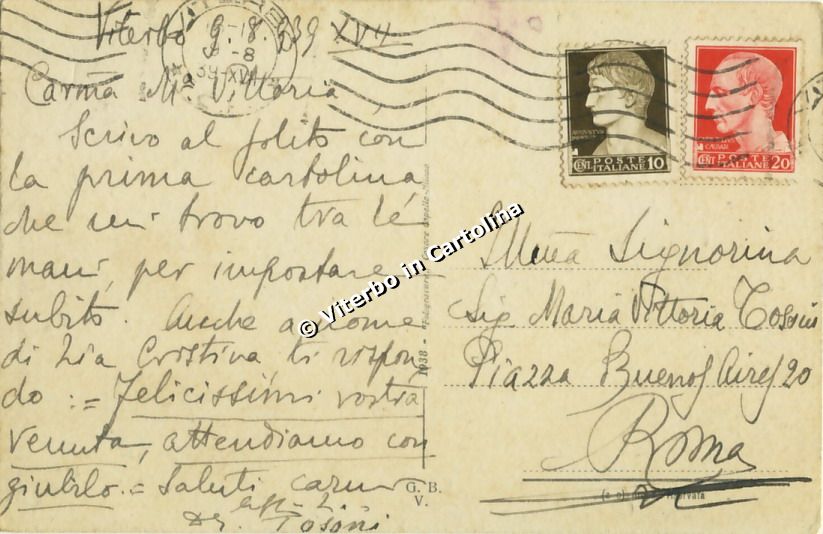 Viterbo 9.8.939 XVII
9-8
39-XVII
Carma Mª Vittoria,
Scrivo al solito con
la prima cartolina
che mi trovo tra le
mani, per impostare
subito. Anche a nome
di Zia Cristina ti rispon
do := Felicissimi vostra
venuta, attendiamo con
giubilo.= Saluti
Tosoni
AUGUSTVS
CENT. POSTE ITALIANE 10
CAESAR
CENT. POSTE ITALIANE 20
Signorina
Sig. Maria Vittoria Tosoni
Piazza Buenos Aires 20
Roma
1938 -
G. B.
V.
© Viterbo in Cartolina